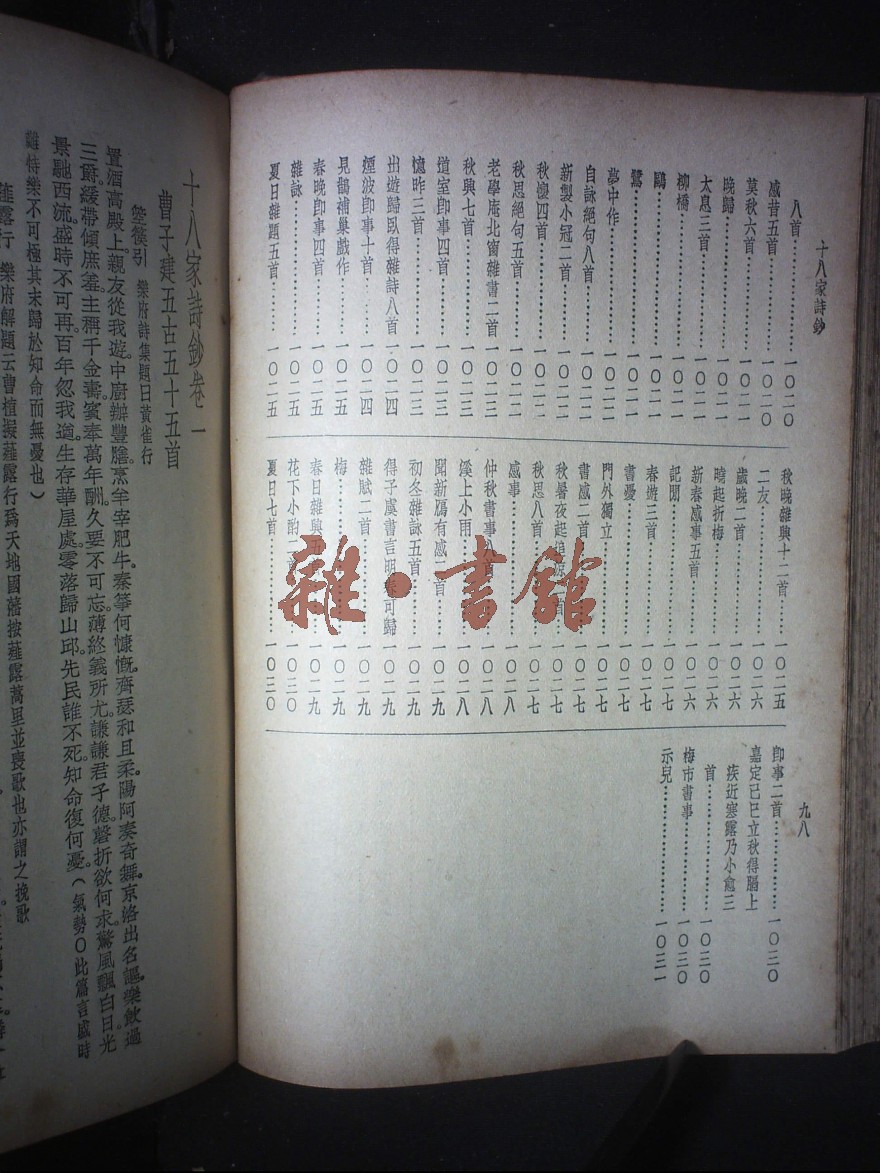 十八家詩鈔
九八
八首…………一〇二〇
感昔五首…………一〇二〇
莫秋六首…………一〇二一
晚歸…………一〇二一
太息三首…………一〇二一
柳橋…………一〇二一
鷗…………一〇二一
鷺…………一〇二一
夢中作…………一〇二二
自詠絕句八首…………一〇二二
新製小冠二首…………一〇二二
秋懷四首…………一〇二二
秋思絕句五首…………一〇二二
老學庵北窗雜書二首…………一〇二三
秋興七首…………一〇二三
道室書事四首…………一〇二三
憶昨三首…………一〇二三
出遊歸臥得雜詩八首…………一〇二四
煙波卽事十首…………一〇二四
見鵲補巢戲作…………一〇二五
春晚卽事四首…………一〇二五
雜詠…………一〇二五
夏日雜題五首…………一〇二五
秋晚雜興十二首…………一〇二五
二友…………一〇二六
歲晚二首…………一〇二六
曉起折梅…………一〇二六
新春感事五首…………一〇二六
記閒…………一〇二七
春遊三首…………一〇二七
書憂…………一〇二七
門外獨立…………一〇二七
書感二首…………一〇二七
秋暑夜起追
首…………一〇二七
秋思八首…………一〇二七
感事…………一〇二八
仲秋書事
首…………一〇二八
溪上小雨…………一〇二八
聞新鴈有感二首…………一〇二九
初冬雜詠五首…………一〇二九
得子虡書言明
可歸…………一〇二九
雜賦二首…………一〇二九
梅…………一〇二九
春日雜興五
…………一〇二九
花下小酌二首…………一〇三〇
夏日七首…………一〇三〇
卽事二首…………一〇三〇
嘉定己巳立秋得膈上
疾近寒露乃小愈三
首…………一〇三〇
梅市書事…………一〇三〇
示兒…………一〇三一
十八家詩鈔卷一
曹子建五古五十五首
箜篌引 樂府詩集題曰黃雀行
置酒高殿上。親友從我遊。中廚辦豐膳。烹羊宰肥牛。秦箏何慷慨。齊瑟和且柔。陽阿奏奇舞。京洛出名謳。樂飲過
三爵。緩帶傾庶羞。主稱千金壽。賓奉萬年酬。久要不可忘。薄終義所尤。謙謙君子德。磬折欲何求。驚風飄白日。光
景馳西流。盛時不可再。百年忽我遒。生存華屋處。零落歸山邱。先民誰不死。知命復何憂。(氣勢〇此篇言盛時
難特樂不可極其末歸於知命而無憂也)
薤露行 樂府解題云曹植擬薤露行爲天地國藩按薤露蒿里並喪歌也亦謂之挽歌
雜·書館